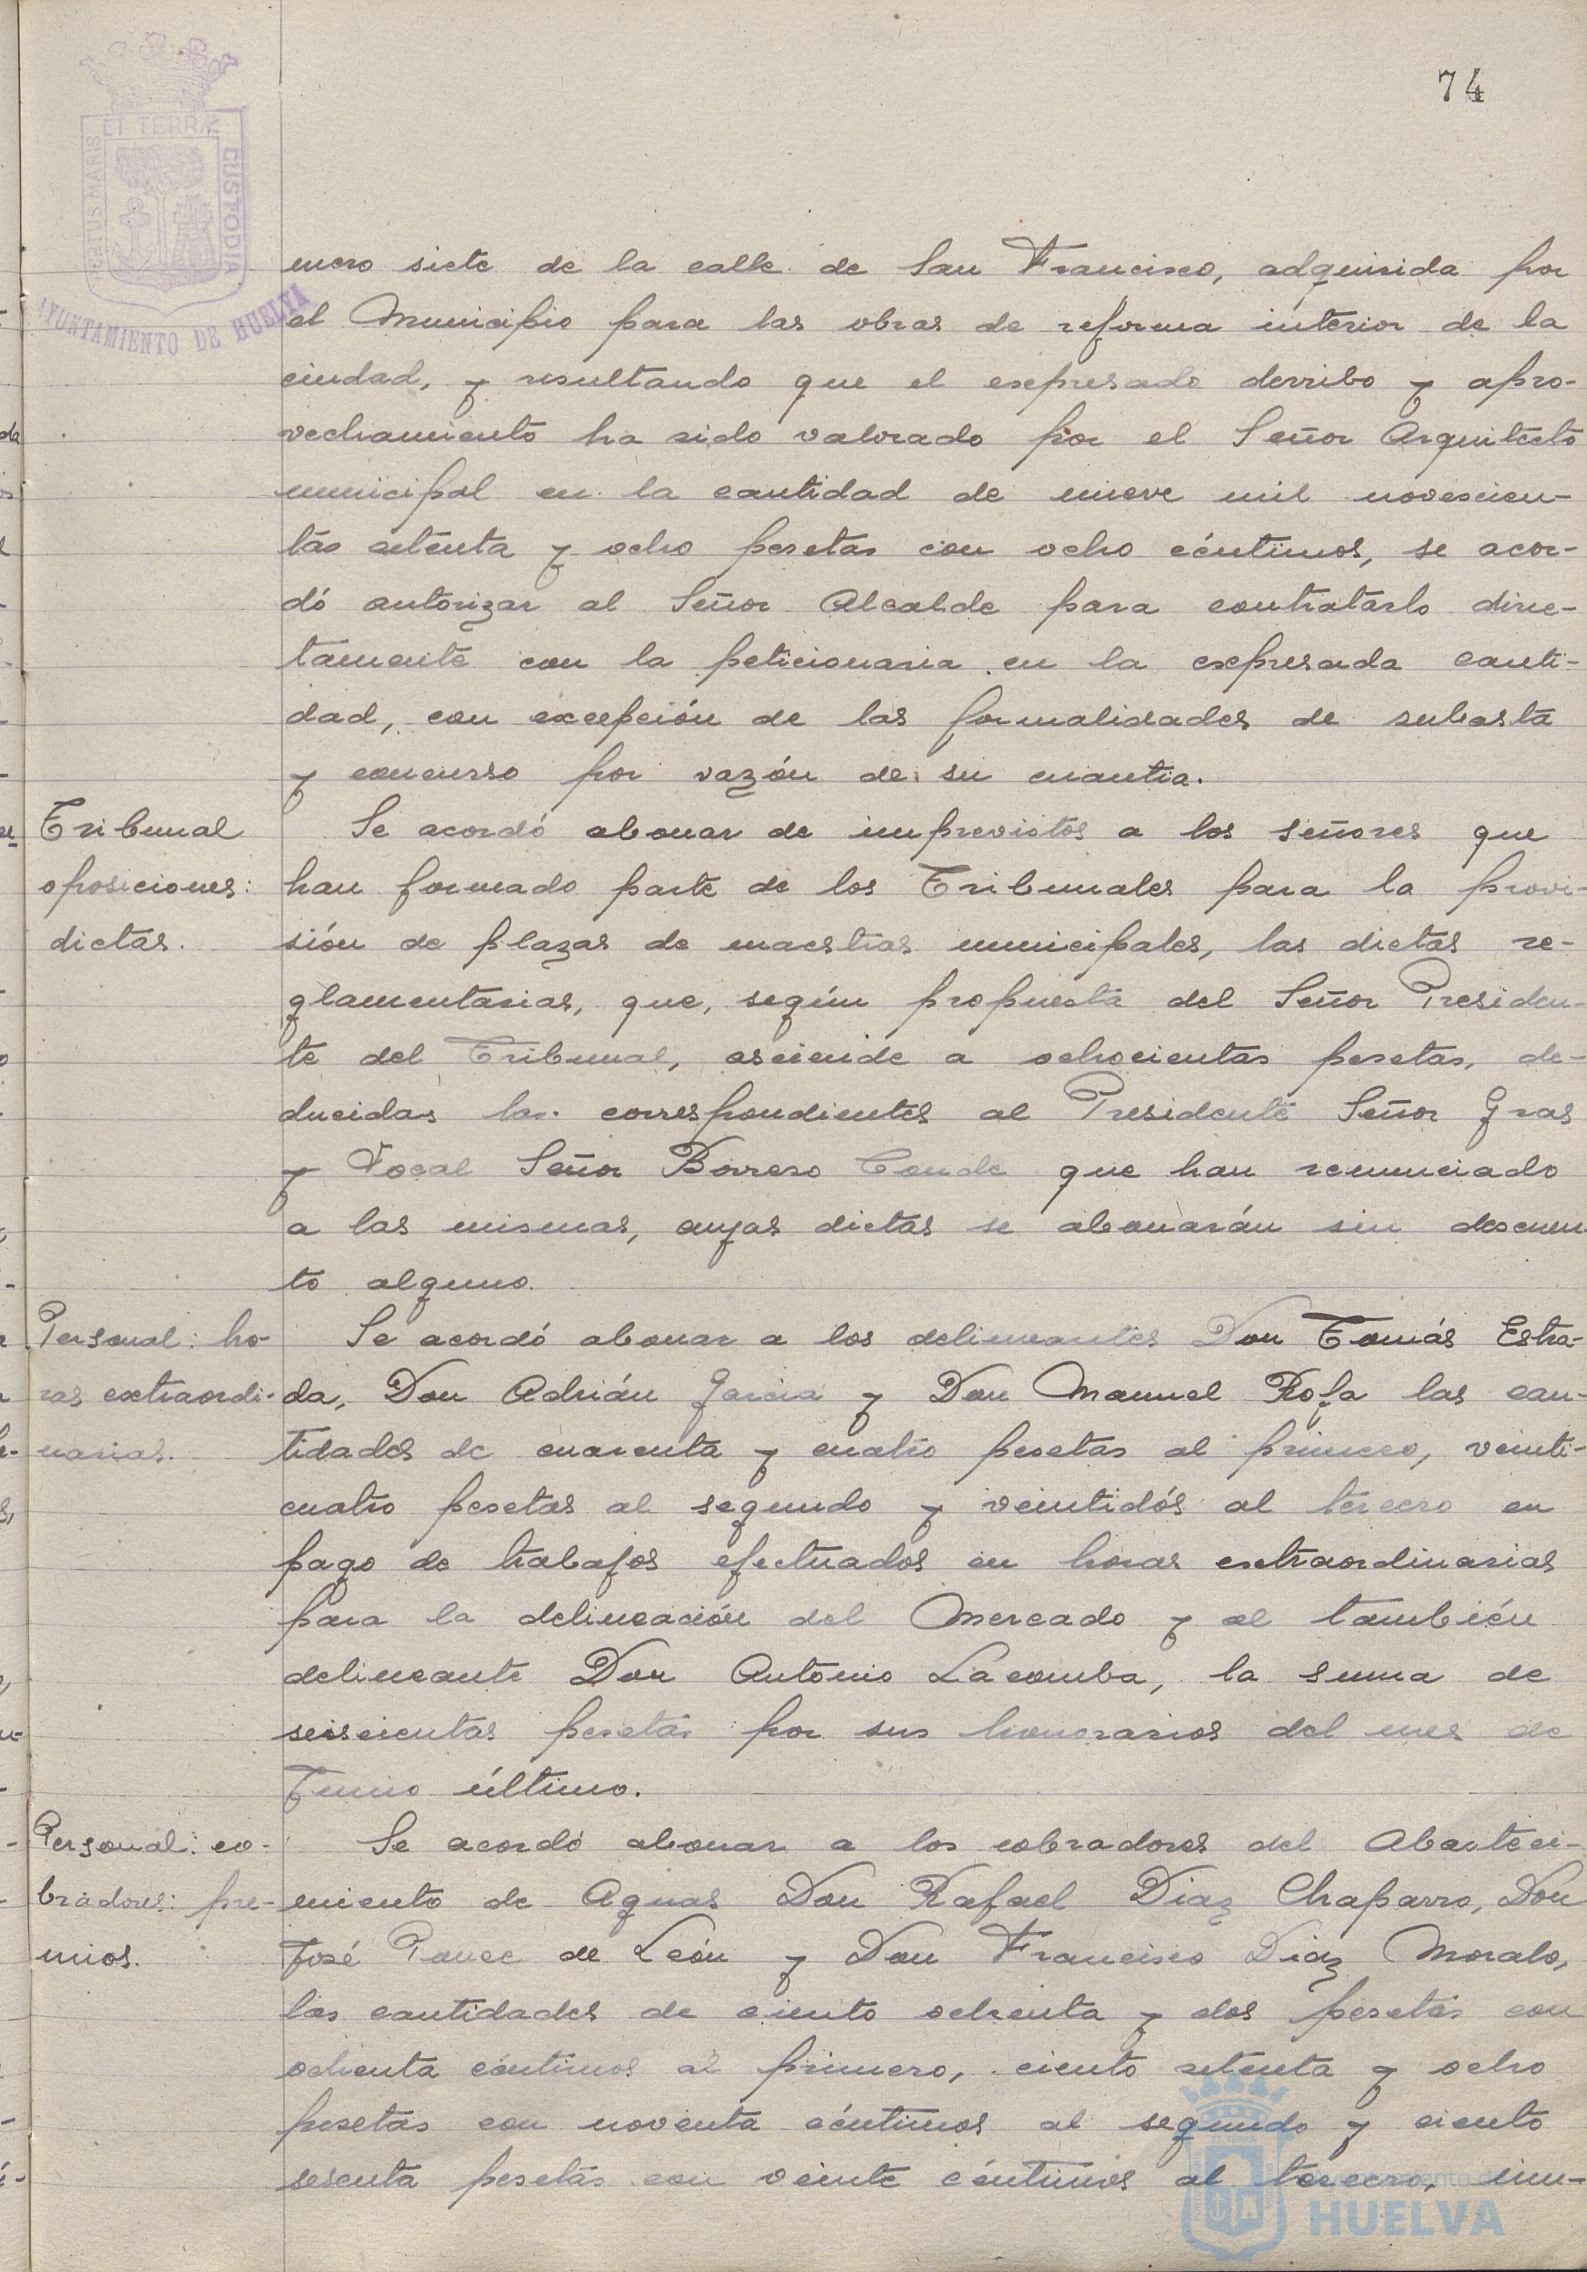 74
ET TERRÆ
PORTUS MARIS
CUSTODIA
AYUNTAMIENTO DE HUELVA
mero siete de la calle de San Francisco, adquirida por
el Municipio para las obras de reforma interior de la
ciudad, y resultando que el expresado derribo y apro-
vechamiento ha sido valorado por el Señor Arquitecto
municipal en la cantidad de nueve mil novescien-
tas setenta y ocho pesetas con ocho céntimos, se acor-
dó autorizar al Señor Alcalde para contratarlo direc-
tamente con la peticionaria en la expresada canti-
dad, con excepción de las formalidades de subasta
y concurso por razón de su cuantia.
Tribunal
oposiciones:
dietas.
Se acordó abonar de imprevistos a los señores que
han formado parte de los Tribunales para la provi-
sión de plazas de maestras municipales, las dietas re-
glamentarias, que, según propuesta del Señor Presiden-
te del Tribunal, asciende a ochocientas pesetas, de-
ducidas las correspondientes al Presidente Señor Gras
y Vocal Señor Borrero Conde que han renunciado
a las mismas, cuyas dietas se abonarán sin descuen
to alguno.
Personal: ho-
ras extraordi-
narias.
Se acordó abonar a los delineantes Don Tomás Estra-
da, Don Adrián Garcia y Don Manuel Rofa las can-
tidades de cuarenta y cuatro pesetas al primero, veinti-
cuatro pesetas al segundo y veintidós al tercero en
pago de trabajos efectuados en horas extraordinarias
para la delineación del Mercado y al también
delineante Don Antonio Lacomba, la suma de
seiscientas pesetas por sus honorarios del mes de
Junio último.
Personal: co-
bradores: pre-
mios.
Se acordó abonar a los cobradores del Abasteci-
miento de Aguas Don Rafael Diaz Chaparro, Don
José Ponce de León y Don Francisco Diaz Moralo,
las cantidades de ciento ochenta y dos pesetas con
ochenta céntimos al primero, ciento setenta y ocho
pesetas con noventa céntimos al segundo y ciento
sesenta pesetas con veinte céntimos al tercero, im-
Ayuntamiento de
HUELVA